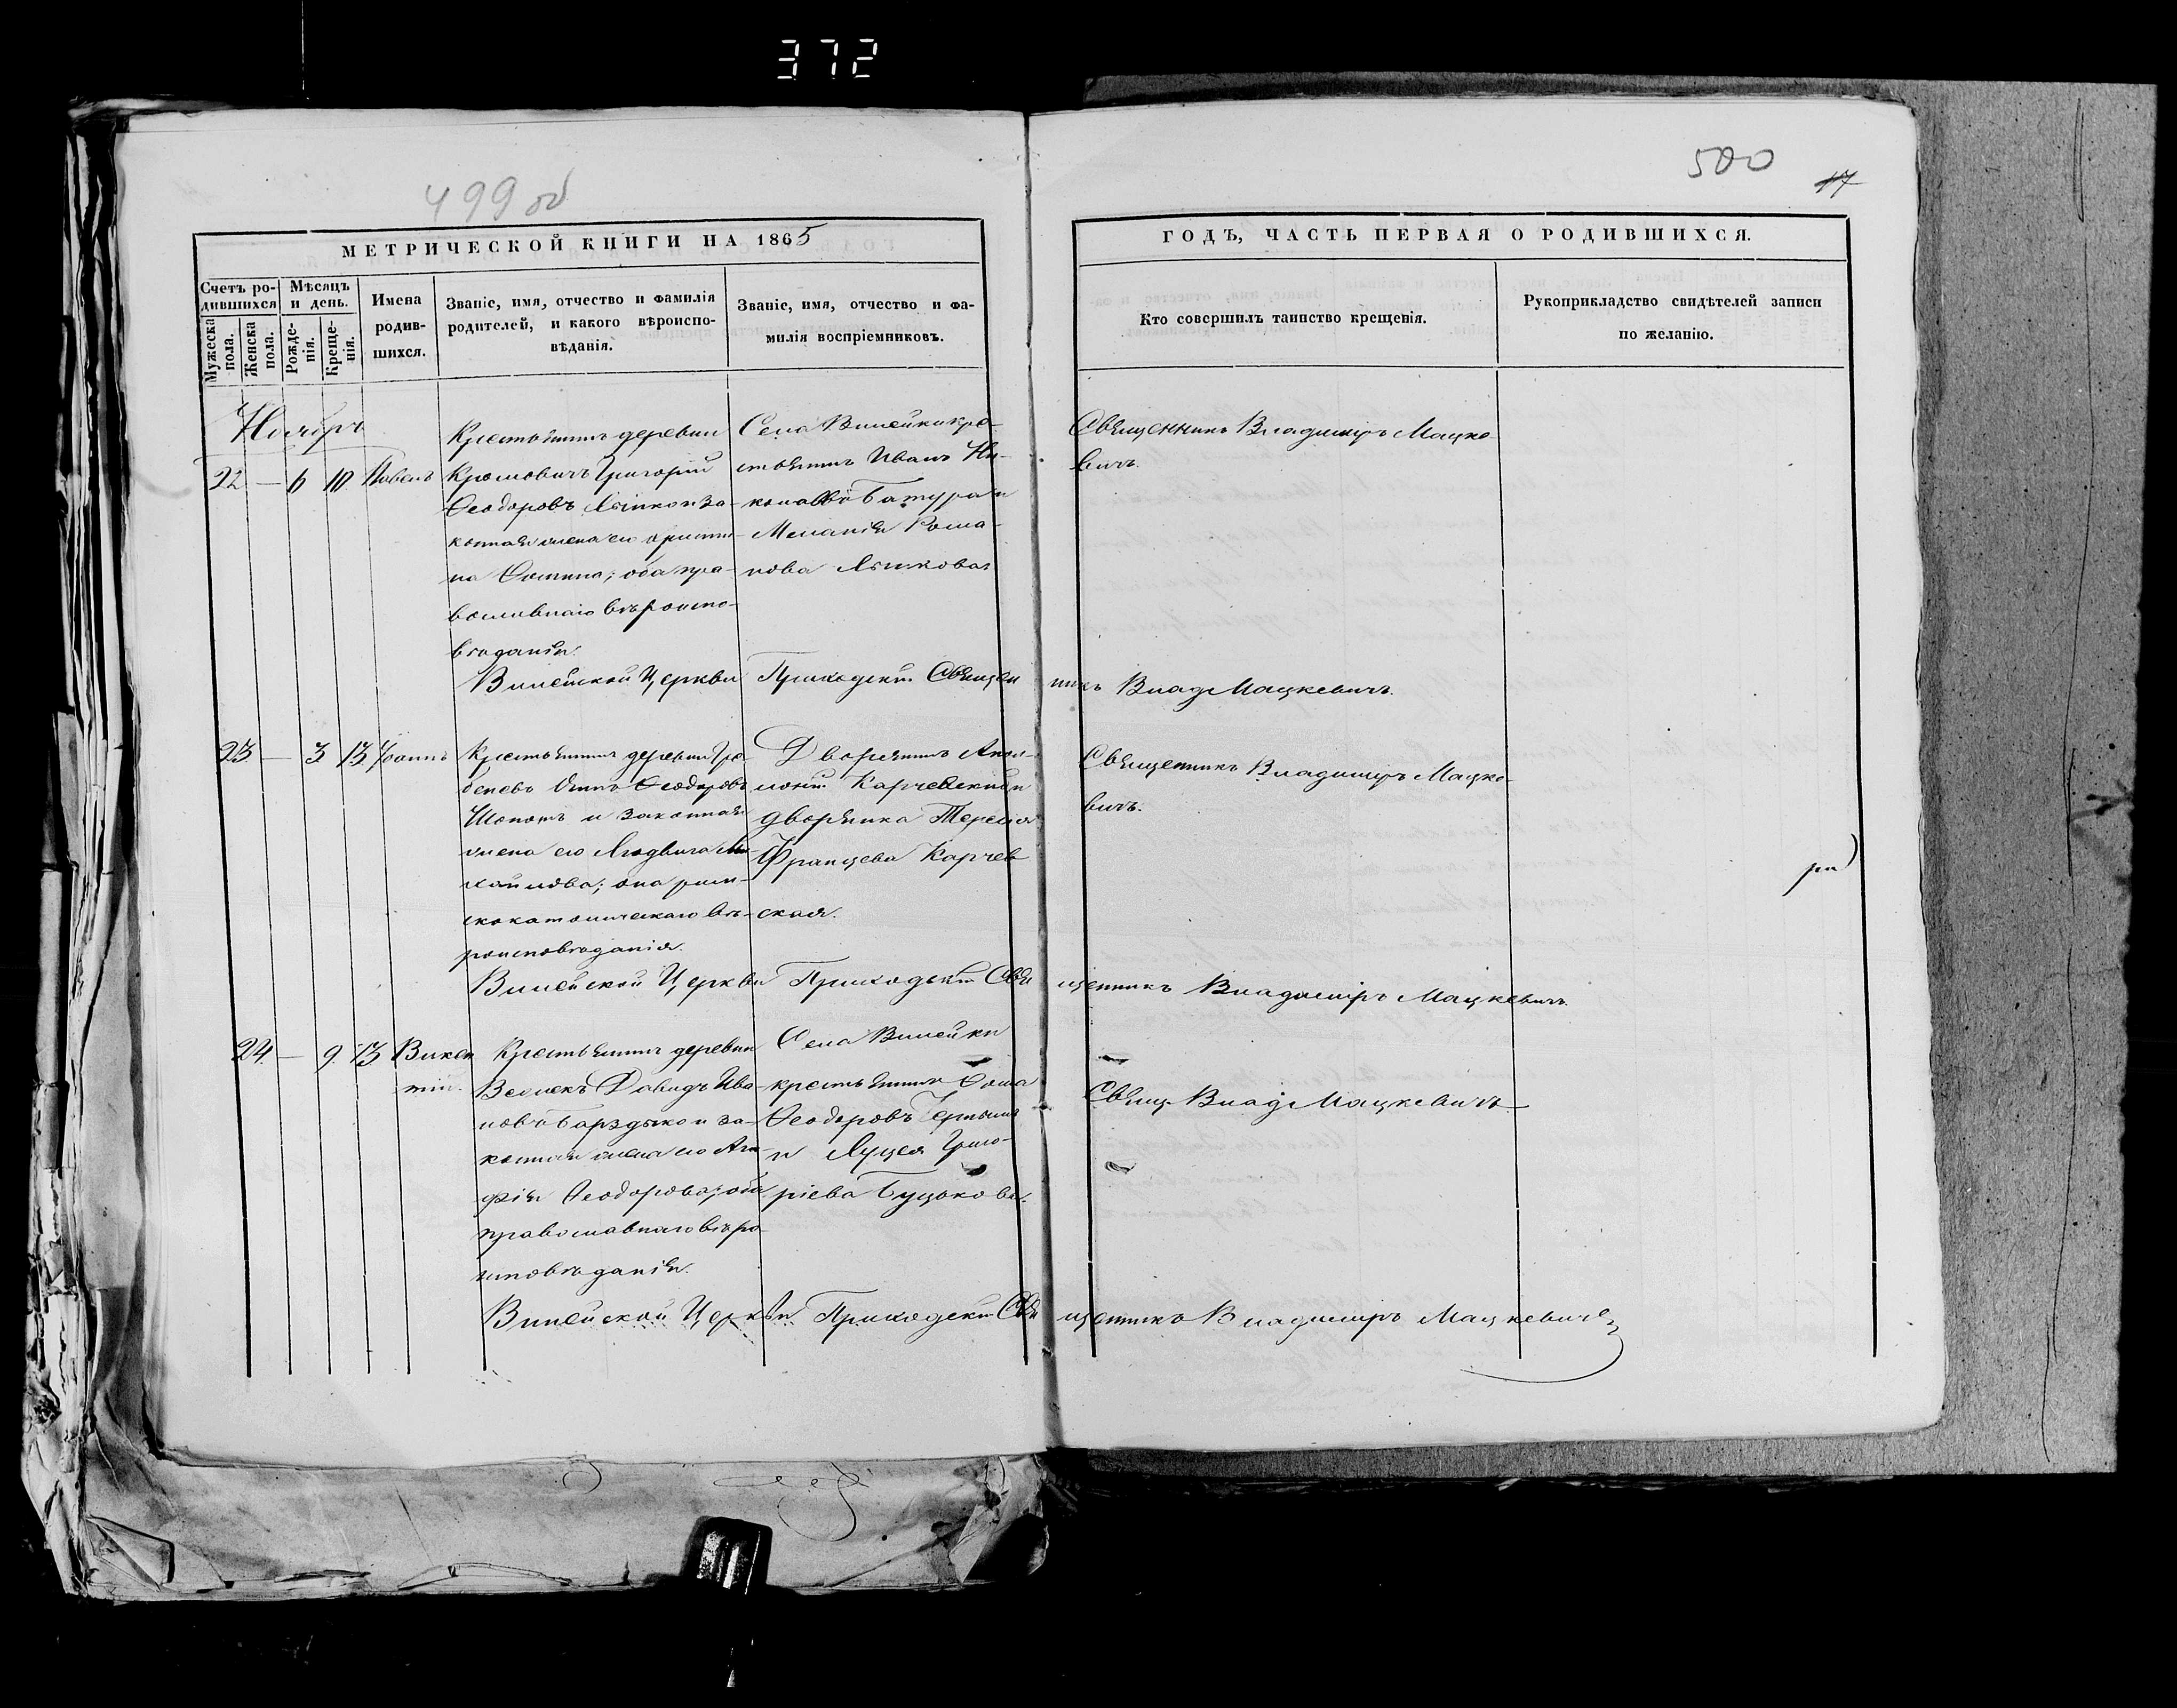 372
499 об
500
17
МЕТРИЧЕСКОЙ КНИГИ НА 1865
ГОДЪ, ЧАСТЬ ПЕРВАЯ О РОДИВШИХСЯ.
Счетъ родившихся
Мужеска пола.
Женска пола.
Мѣсяцъ и день.
Рожденія.
Крещенія.
Имена родившихся.
Званіе, имя, отчество и фамилія
родителей, и какого вѣроиспо-
вѣданія.
Званіе, имя, отчество и фа-
милія воспріемниковъ.
Кто совершилъ таинство крещенія.
Рукоприкладство свидѣтелей записи
по желанію.
Ноябрь
22 — 6 10 Павелъ
Крестьянинъ деревни
Григорій
Ѳеодоровъ и за-
конная жена его Кристи-
на Ѳомина; оба пра-
вославнаго вѣроиспо-
вѣданія.
Села Вилейки кре-
стьянинъ Иванъ Ни-
Батура и
Меланія Рома-
нова
Священникъ Владиміръ Мацке-
вичъ.
Вилейской Церкви Приходскій Священникъ Влад Мацкевичъ.
23 — 3 13 Іоаннъ
Крестьянинъ деревни
Ѳеодоровъ
и законная
жена его Людвига Ми-
хайлова; она рим-
скокатолическаго вѣ-
роисповѣданія.
Дворянинъ
Карчевскій и
дворянка Тересія
Францева Карчев-
ская.
Священникъ Владиміръ Мацке-
вичъ.
Вилейской Церкви Приходскій Священникъ Владиміръ Мацкевичъ.
24 — 9 13 Викен-
тій.
Крестьянинъ деревни
Давидъ Ива-
новъ и за-
конная жена его Ага-
фія Ѳеодорова; оба
православнаго вѣро-
исповѣданія.
Села Вилейки
крестьянинъ Ѳома
Ѳеодоровъ
и Луцея Григо-
ріева
Свящ Влад Мацкевичъ
Вилейской Церкви Приходскій Священникъ Владиміръ Мацкевичъ